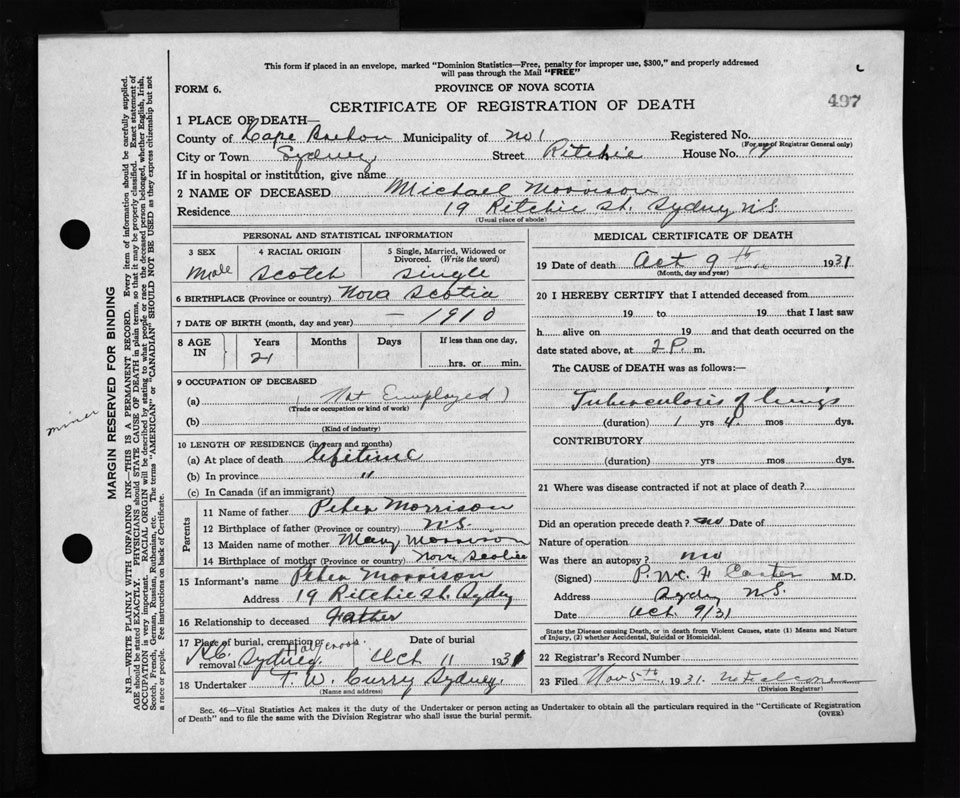 This form if placed in an envelope, marked "Dominion Statistics—Free, penalty for improper use, $300," and properly addressed
will pass through the Mail "FREE"
FORM 6.
PROVINCE OF NOVA SCOTIA
497
CERTIFICATE OF REGISTRATION OF DEATH
1 PLACE OF DEATH—
County of Cape Breton Municipality of No 1 Registered No.
(For use of Registrar General only)
City or Town Sydney Street Ritchie House No. 19
If in hospital or institution, give name
2 NAME OF DECEASED Michael Morrison
Residence 19 Ritchie St. Sydney N.S.
(Usual place of abode)
PERSONAL AND STATISTICAL INFORMATION
3 SEX 4 RACIAL ORIGIN 5 Single, Married, Widowed or Divorced. (Write the word)
Male Scotch Single
6 BIRTHPLACE (Province or country) Nova Scotia
7 DATE OF BIRTH (month, day and year) – 1910
8 AGE IN Years Months Days If less than one day,
21 hrs. or min.
9 OCCUPATION OF DECEASED
(a) Not Employed)
(Trade or occupation or kind of work)
(b)
(Kind of industry)
10 LENGTH OF RESIDENCE (in years and months)
(a) At place of death lifetime
(b) In province "
(c) In Canada (if an immigrant)
Parents
11 Name of father Peter Morrison
12 Birthplace of father (Province or country) N.S.
13 Maiden name of mother Mary Morrison
14 Birthplace of mother (Province or country) Nova Scotia
15 Informant's name Peter Morrison
Address 19 Ritchie St. Sydney
16 Relationship to deceased Father
17 Place of burial, cremation or removal R.C. Sydney Date of burial Oct 11 1931
18 Undertaker F. W. Curry Sydney.
(Name and address)
MEDICAL CERTIFICATE OF DEATH
19 Date of death Oct 9th 1931
(Month, day and year)
20 I HEREBY CERTIFY that I attended deceased from
19 to 19 that I last saw
h alive on 19 and that death occurred on the
date stated above, at 2 P. m.
The CAUSE of DEATH was as follows:—
Tuberculosis of lungs
(duration) 1 yrs 4 mos dys.
CONTRIBUTORY
(duration) yrs mos dys.
21 Where was disease contracted if not at place of death?
Did an operation precede death? no Date of
Nature of operation
Was there an autopsy? no
(Signed) M.D.
Address Sydney N.S.
Date Oct. 9/31
State the Disease causing Death, or in death from Violent Causes, state (1) Means and Nature
of Injury, (2) whether Accidental, Suicidal or Homicidal.
22 Registrar's Record Number
23 Filed Nov 5th 1931.
(Division Registrar)
Sec. 46—Vital Statistics Act makes it the duty of the Undertaker or person acting as Undertaker to obtain all the particulars required in the "Certificate of Registration
of Death" and to file the same with the Division Registrar who shall issue the burial permit.
(OVER)
miner
MARGIN RESERVED FOR BINDING
N.B.—WRITE PLAINLY WITH UNFADING INK—THIS IS A PERMANENT RECORD. Every item of information should be carefully supplied.
AGE should be stated EXACTLY. PHYSICIANS should STATE CAUSE OF DEATH in plain terms, so that it may be properly classified. Exact statement of
OCCUPATION is very important. RACIAL ORIGIN will be described by stating to what people or race the deceased person belonged, whether English, Irish,
Scotch, French, German, Russian, Ruthenian, etc. The terms "AMERICAN" or "CANADIAN" SHOULD NOT BE USED as they express citizenship but not
a race or people. See instructions on back of Certificate.